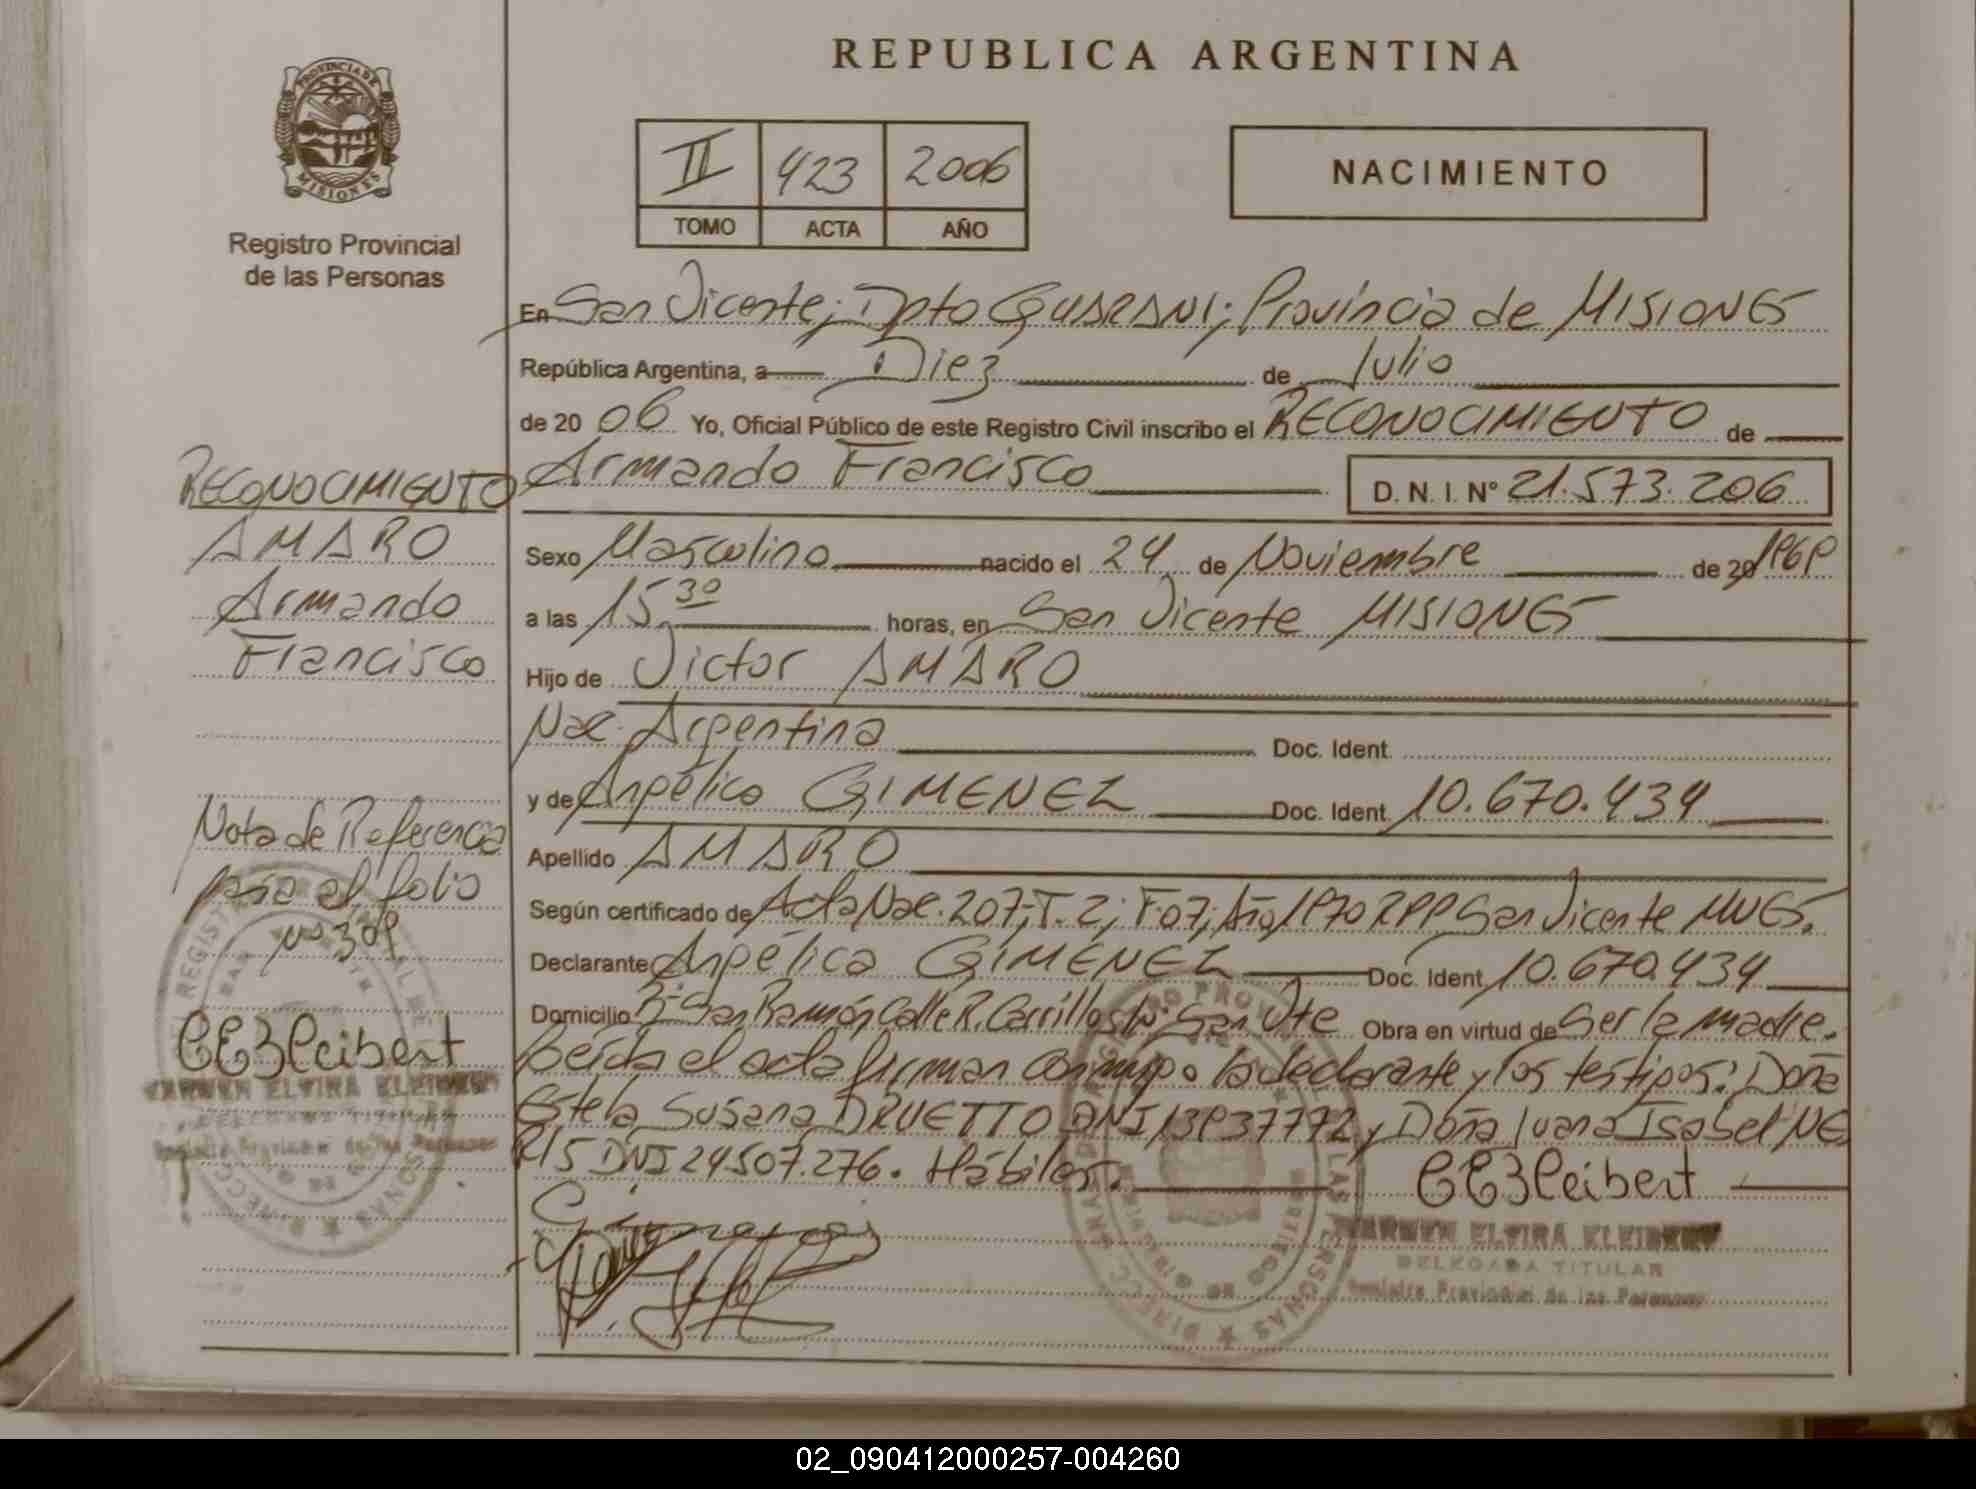 PROVINCIA DE
MISIONES
Registro Provincial
de las Personas
REPUBLICA ARGENTINA
II 423 2006
TOMO ACTA AÑO
NACIMIENTO
En San Vicente; Dpto GUARANI; Provincia de MISIONES
República Argentina, a Diez de Julio
de 20 06 Yo, Oficial Público de este Registro Civil inscribo el RECONOCIMIENTO de
Armando Francisco D. N. I. N° 21.573.206
Sexo Masculino nacido el 24 de Noviembre de 20 1969
a las 15 30 horas, en San Vicente MISIONES
Hijo de Victor AMARO
Nac. Argentina Doc. Ident.
y de Angélica GIMENEZ Doc. Ident. 10.670.434
Apellido AMARO
Según certificado de Acta Nac. 207; T. 2; F. 07; Año 1970 RPP San Vicente MNES.
Declarante Angélica GIMENEZ Doc. Ident. 10.670.434
Domicilio B° San Ramón Calle R. Carrillo San Vte Obra en virtud de ser la madre.
Leída el acta firman conmigo la declarante y los testigos: Doña
Estela Susana DRUETTO DNI 13937772 y Doña Juana Isabel NE
RIS DNI 24507.276. Hábiles.
CEKleibert
CARMEN ELVIRA KLEIBERT
DELEGADA TITULAR
Registro Provincial de las Personas
RECONOCIMIENTO
AMARO
Armando
Francisco
Nota de Referencia
pasa al folio
N° 309
CEKleibert
CARMEN ELVIRA KLEIBERT
DELEGADA TITULAR
Registro Provincial de las Personas
02_090412000257-004260